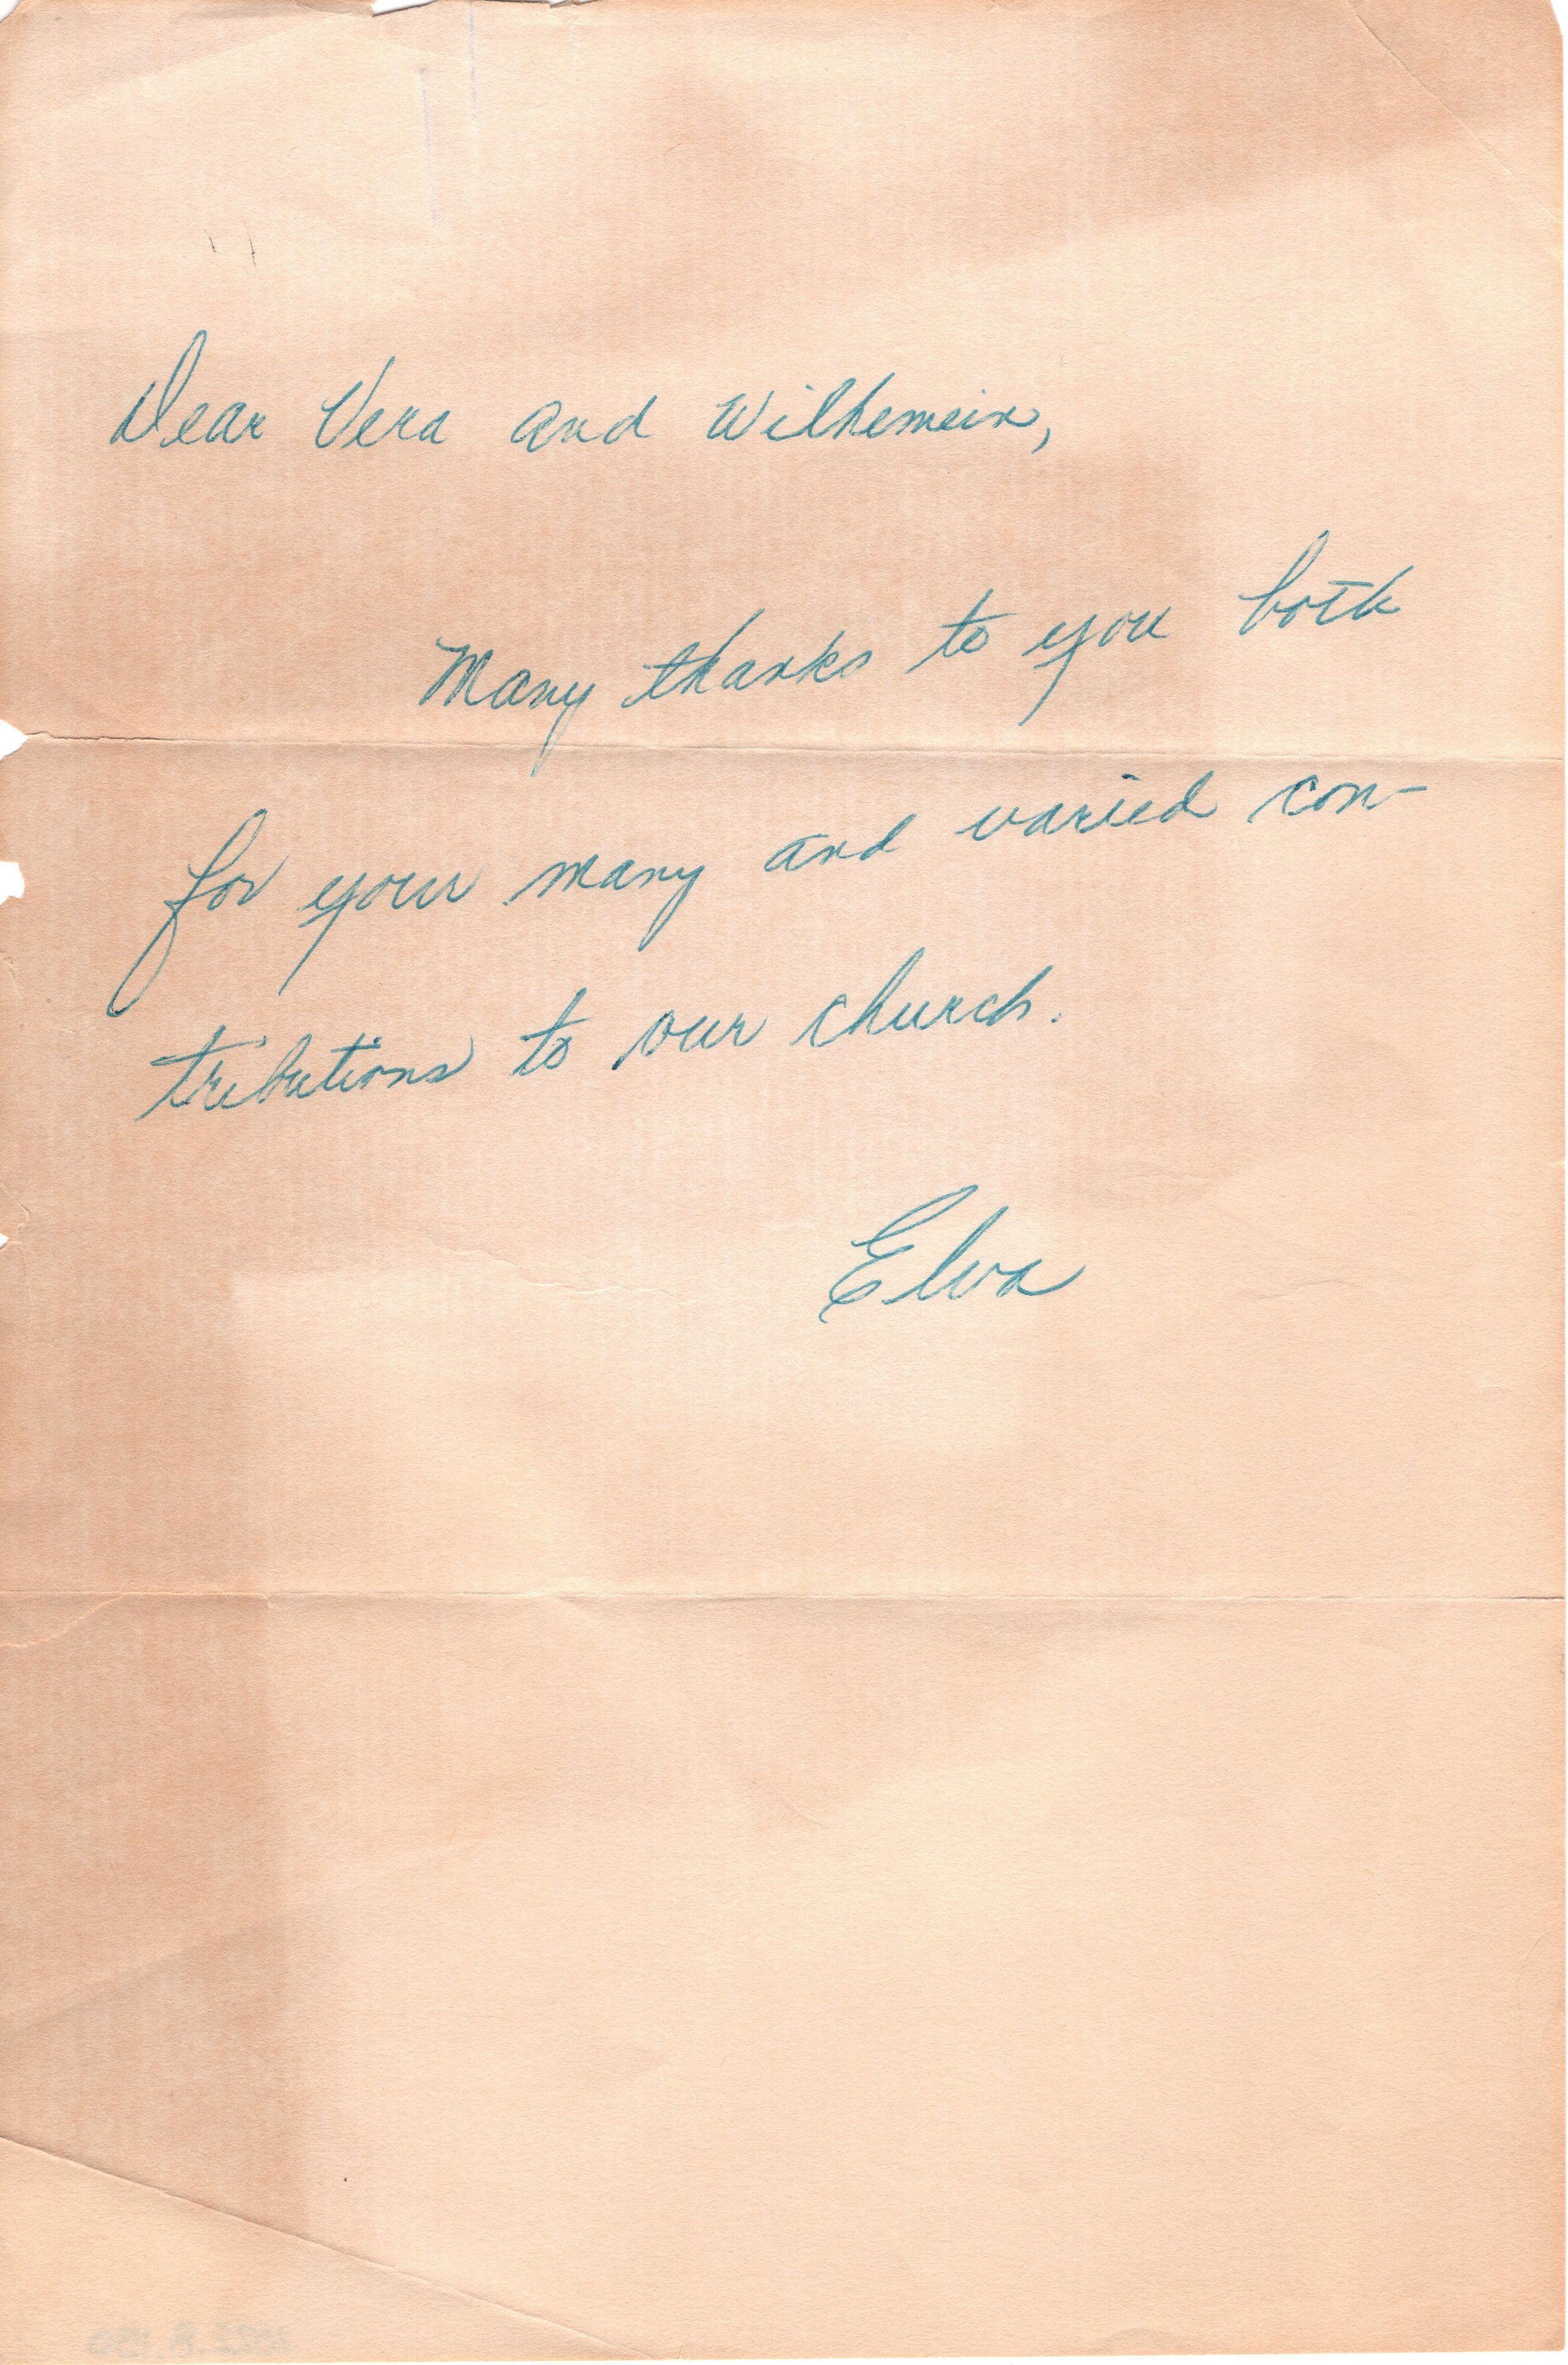 Dear Vera and Wilhemein,
Many thanks to you both
for your many and varied con-
tributions to our church.
Elva